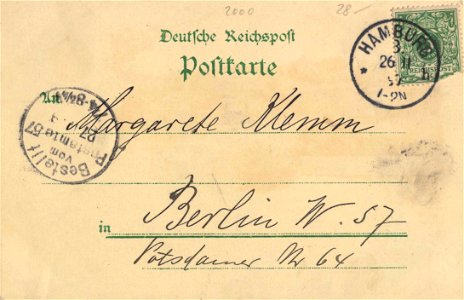 2000 28-
Deutsche Reichspost
Postkarte
HAMBURG
3
26 11
97
1-2N
REICHSPOST
Bestellt
vom
Postamte 57
An Margarete Klemm
in Berlin W. 57
Potsdamer Nr 64